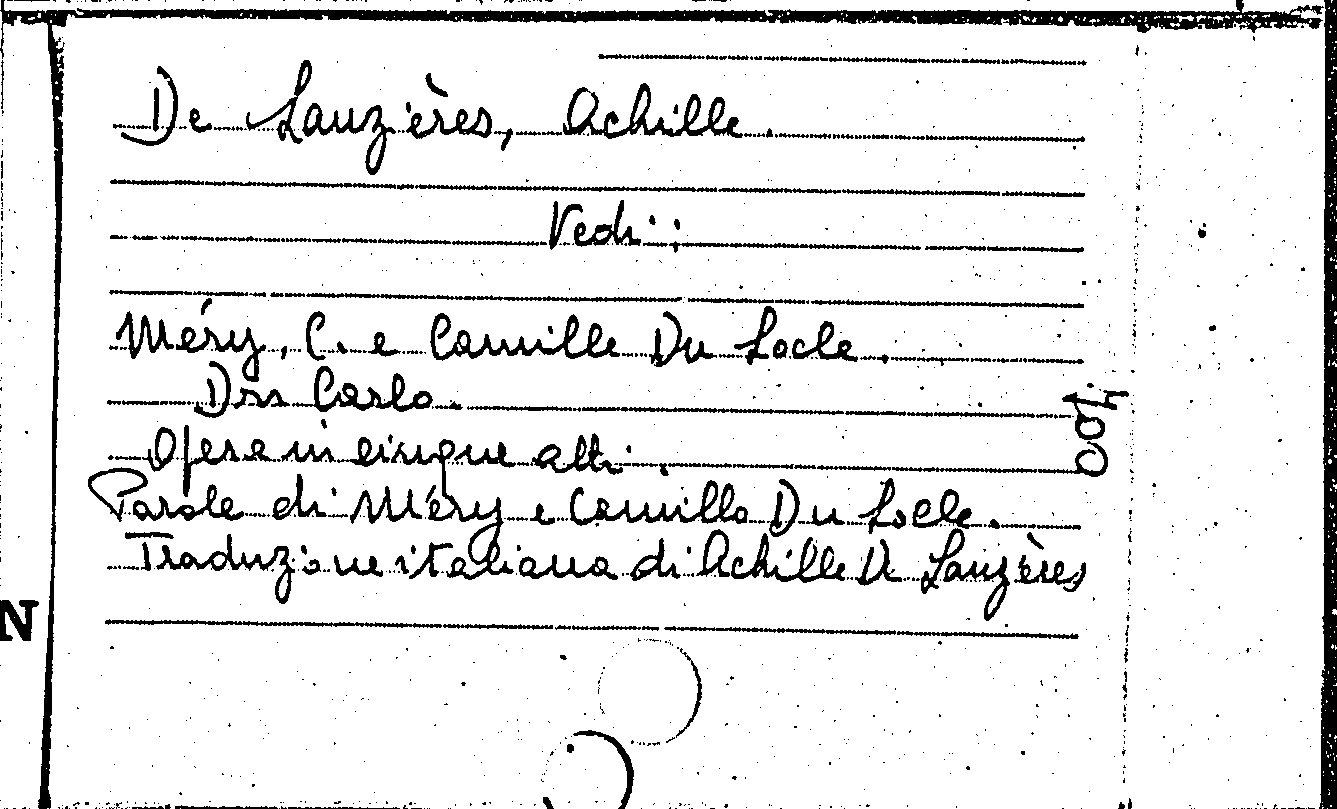 De Lauzières, Achille.
Vedi:
Méry, C. e Camille Du Locle.
Don Carlo.
Opera in cinque atti.
Parole di Méry e Camillo Du Locle.
Traduzione italiana di Achille De Lauzières
400
N